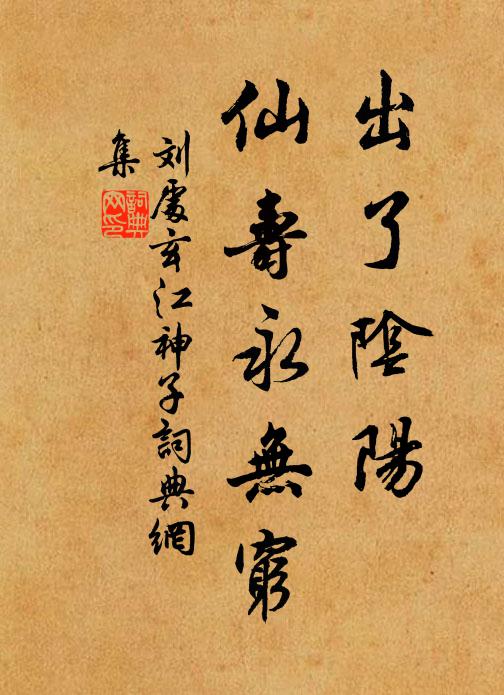 出了陰陽
仙壽永無窮
刘處玄江神子詞典網
集
詞典
网印